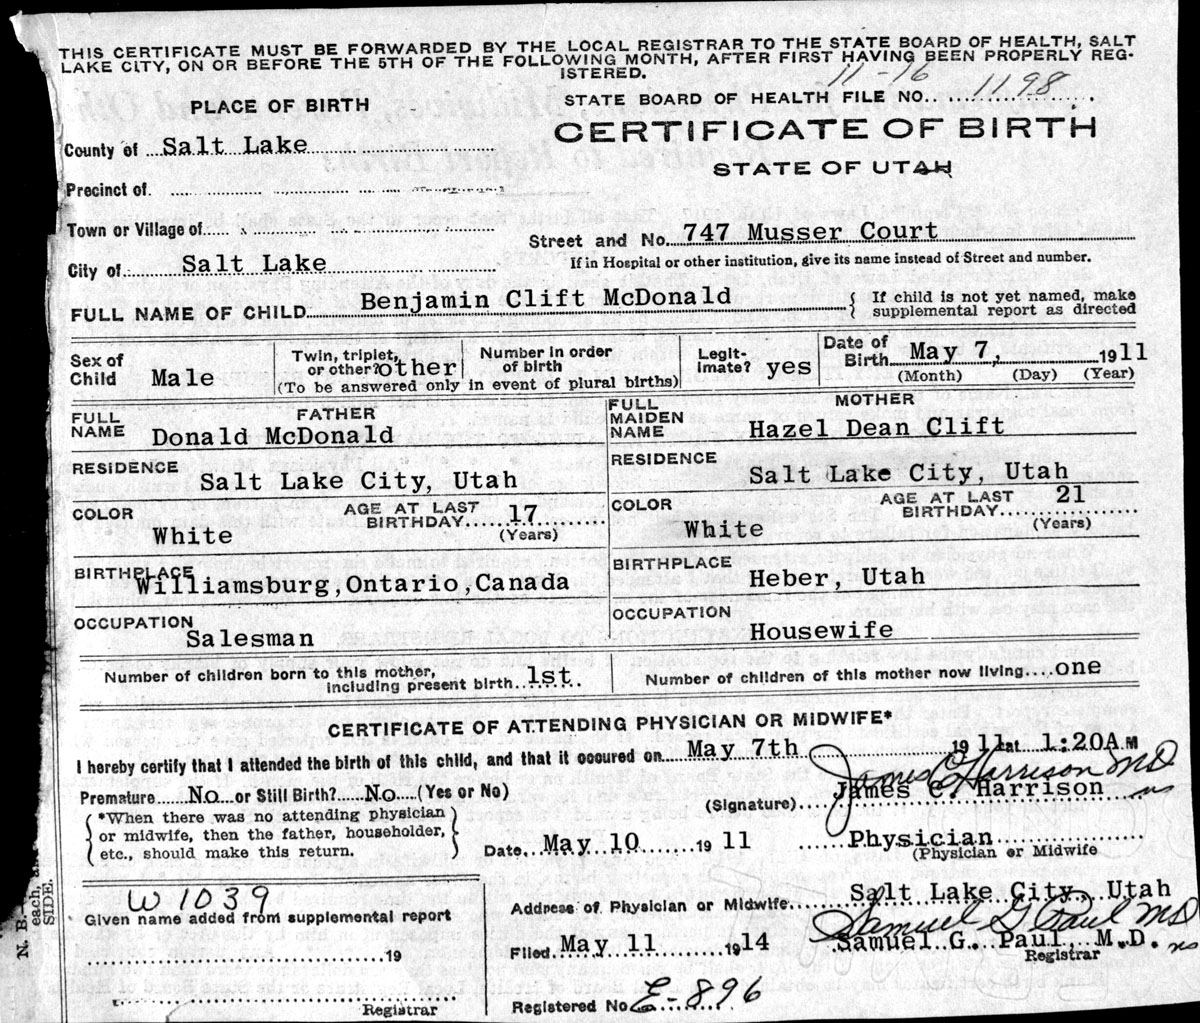 THIS CERTIFICATE MUST BE FORWARDED BY THE LOCAL REGISTRAR TO THE STATE BOARD OF HEALTH, SALT
LAKE CITY, ON OR BEFORE THE 5TH OF THE FOLLOWING MONTH, AFTER FIRST HAVING BEEN PROPERLY REG-
ISTERED.
11-16
PLACE OF BIRTH
STATE BOARD OF HEALTH FILE NO. 1198
CERTIFICATE OF BIRTH
County of Salt Lake
STATE OF UTAH
Precinct of
Town or Village of
Street and No. 747 Musser Court
City of Salt Lake
If in Hospital or other institution, give its name instead of Street and number.
FULL NAME OF CHILD Benjamin Clift McDonald
{ If child is not yet named, make
supplemental report as directed
Sex of Child Male
Twin, triplet, or other? other
Number in order of birth
(To be answered only in event of plural births)
Legit-imate? yes
Date of Birth May 7, 1911
(Month) (Day) (Year)
FATHER
FULL NAME Donald McDonald
MOTHER
FULL MAIDEN NAME Hazel Dean Clift
RESIDENCE Salt Lake City, Utah
RESIDENCE Salt Lake City, Utah
COLOR White
AGE AT LAST BIRTHDAY 17 (Years)
COLOR White
AGE AT LAST BIRTHDAY 21 (Years)
BIRTHPLACE Williamsburg, Ontario, Canada
BIRTHPLACE Heber, Utah
OCCUPATION Salesman
OCCUPATION Housewife
Number of children born to this mother, including present birth 1st.
Number of children of this mother now living one
CERTIFICATE OF ATTENDING PHYSICIAN OR MIDWIFE*
I hereby certify that I attended the birth of this child, and that it occured on May 7th 1911 at 1:20A.M
James C Harrison MD
Premature No or Still Birth? No (Yes or No)
(Signature) James C. Harrison
*When there was no attending physician
or midwife, then the father, householder,
etc., should make this return.
Date May 10 1911
Physician
(Physician or Midwife
W 1039
Given name added from supplemental report
19
Registrar
Address of Physician or Midwife Salt Lake City, Utah
Samuel G Paul MD
Filed May 11 1914
Samuel G. Paul, M.D.
Registrar
Registered No E-896
N. B.
each, an
SIDE.